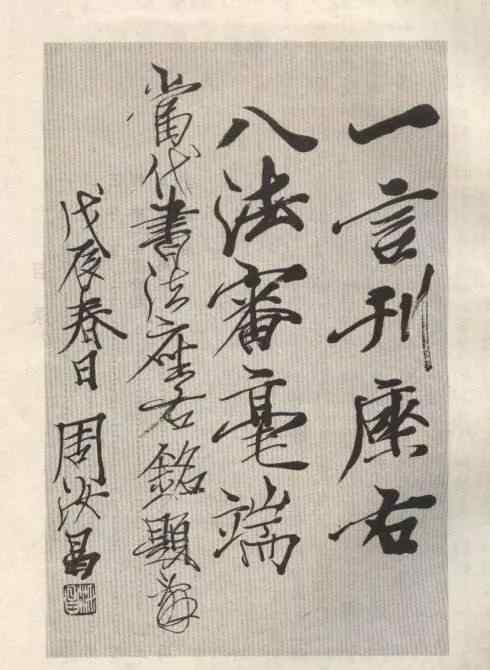 一言刊座右
八法審毫端
當代書法座右銘題
戊辰春日 周汝昌